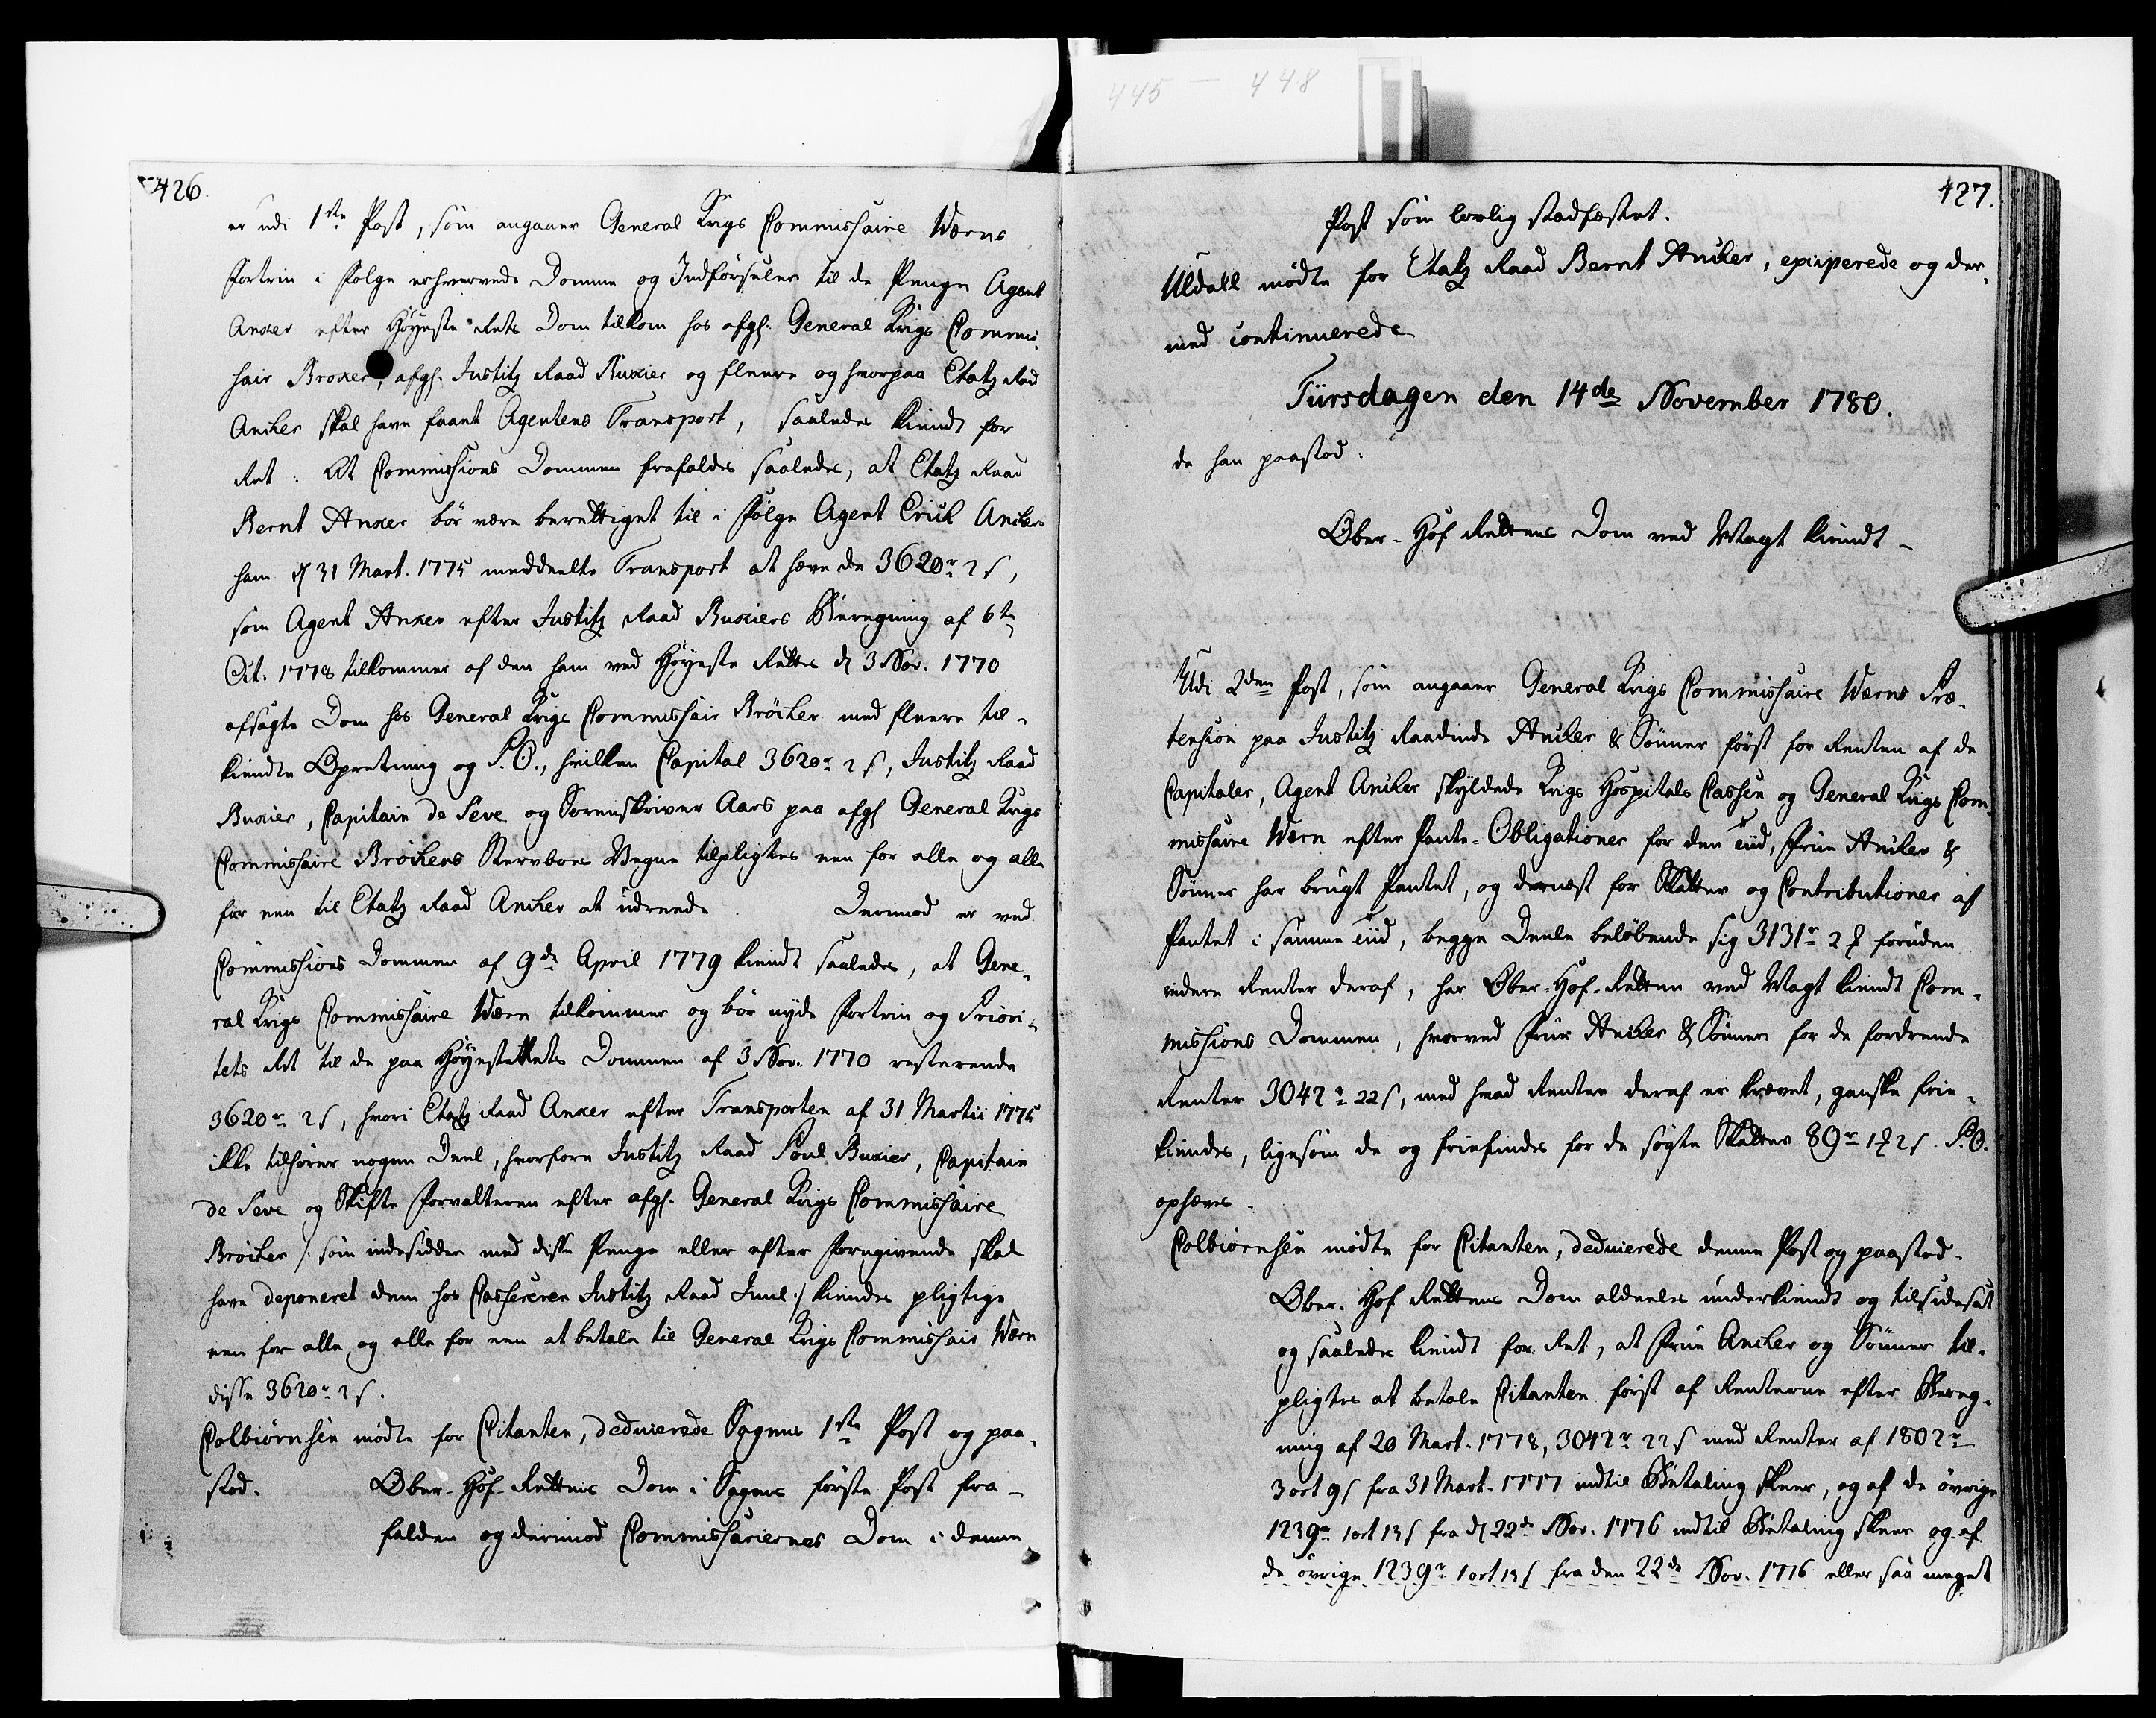 445 — 448
426.
er udi 1ste Post, som angaaer General Krigs Commissaire Werns
Fortrin i Følge erhvervede Domme og Indførseler til de Penge Agent
Anker efter Høyeste Rets Dom tilkom hos afgl. General Krigs Commis-
sair Brøker, afgl. Justitz Raad Buxier og fleere og hvorpaa Etatz Raad
Anker skal have faaet Agentens Transport, saaledes kiendt for
Ret: At Commissions Dommen frafaldes saaledes, at Etatz Raad
Bernt Anker bør være berettiget til i Følge Agent Erick Ankers
ham d 31 Mart. 1775 meddeelte Transport at hæve de 3620r 2 s,
som Agent Anker efter Justitz Raad Buxiers Beregning af 6te
Oct. 1778 tilkommer af den ham ved Høyeste Rettes d 3 Nov. 1770
afsagte Dom hos General Krigs Commissair Brøcker med fleere til-
kiendte Opretning og S. O., hvilken Capital 3620r 2 s, Justitz Raad
Buxier, Capitain de Seve og Sorenskriver Aars paa afgl General Krigs
Commissaire Brøckers Stervboes Vegne tilpligtes een for alle og alle
for een til Etatz Raad Ancker at udreede. Derimod er ved
Commissions Dommen af 9de April 1779 kiendt saaledes, at Gene-
ral Krigs Commissaire Wærn tilkommer og bør nyde Fortrin og Priori-
tets Ret til de paa Høyesterets Dommen af 3 Nov. 1770 resterende
3620r 2 s, hvori Etatz Raad Anker efter Transporten af 31 Martii 1775
ikke tilhører nogen Deel, hvorfore Justitz Raad Poul Buxier, Capitain
de Seve og Skifte Forvalteren efter afgl. General Krigs Commissaire
Brøcker /: som indesidder med disse Penge eller efter Foregivende skal
have deponeret dem hos Cassereren Justitz Raad Juul :/ kiendes pligtige
een for alle og alle for een at betale til General Krigs Commissair Wærn
disse 3620r 2 s.
Colbiørnsen mødte for Citanten, deducerede Sagens 1ste Post og paa-
stod. Ober-Hof-Rettens Dom i Sagens første Post fra-
falden og derimod Commissariernes Dom i denne
427.
Post som lovlig stadfæstet.
Uldall mødte for Etatz Raad Bernt Ancker, exciperede og der-
med continuerede
Tiirsdagen den 14de November 1780.
da han paastod:
Ober-Hof Rettens Dom ved Magt kiendt -
Udi 2den Post, som angaaer General Krigs Commissaire Wærns Præ-
tension paa Justitz Raadinde Ancker & Sønner først for Renten af de
Capitaler, Agent Ancker skyldede Krigs Hospitals Cassen og General Krigs Com-
missaire Wærn efter Pante-Obligationer for den Tiid, Frue Ancker &
Sønner har brugt Pantet, og dernæst for Skatter og Contributioner af
Pantet i samme Tiid, begge Deele beløbende sig 3131r 2 foruden
videre Renter deraf, har Ober-Hof-Retten ved Magt kiendt Com-
missions Dommen, hvorved Frue Ancker & Sønner for de fordrende
Renter 3042r 22 s, med hvad Renter deraf er krævet, ganske frie-
kiendes, ligesom de og friefindes for de søgte Skatter 89r 1 2 s. S. O.
ophæves.
Colbiørnsen mødte for Citanten, deducerede denne Post og paastod.
Ober-Hof Rettens Dom aldeeles underkiendt og tilsidesat
og saaledes kiendt for Ret, at Frue Ancker og Sønner til-
pligtes at betale Citanten først af Renterne efter Bereg-
ning af 20 Mart. 1778, 3042r 22 s med Renter af 1802r
3 ort 9 s fra 31 Mart. 1777 indtil Betaling skeer, og af de øvrige
1239r 1 ort 13 s fra d 22de Nov. 1776 indtil Betaling skeer og af
de øvrige 1239r 1 ort 13 s fra den 22de Nov. 1776 eller saa meget